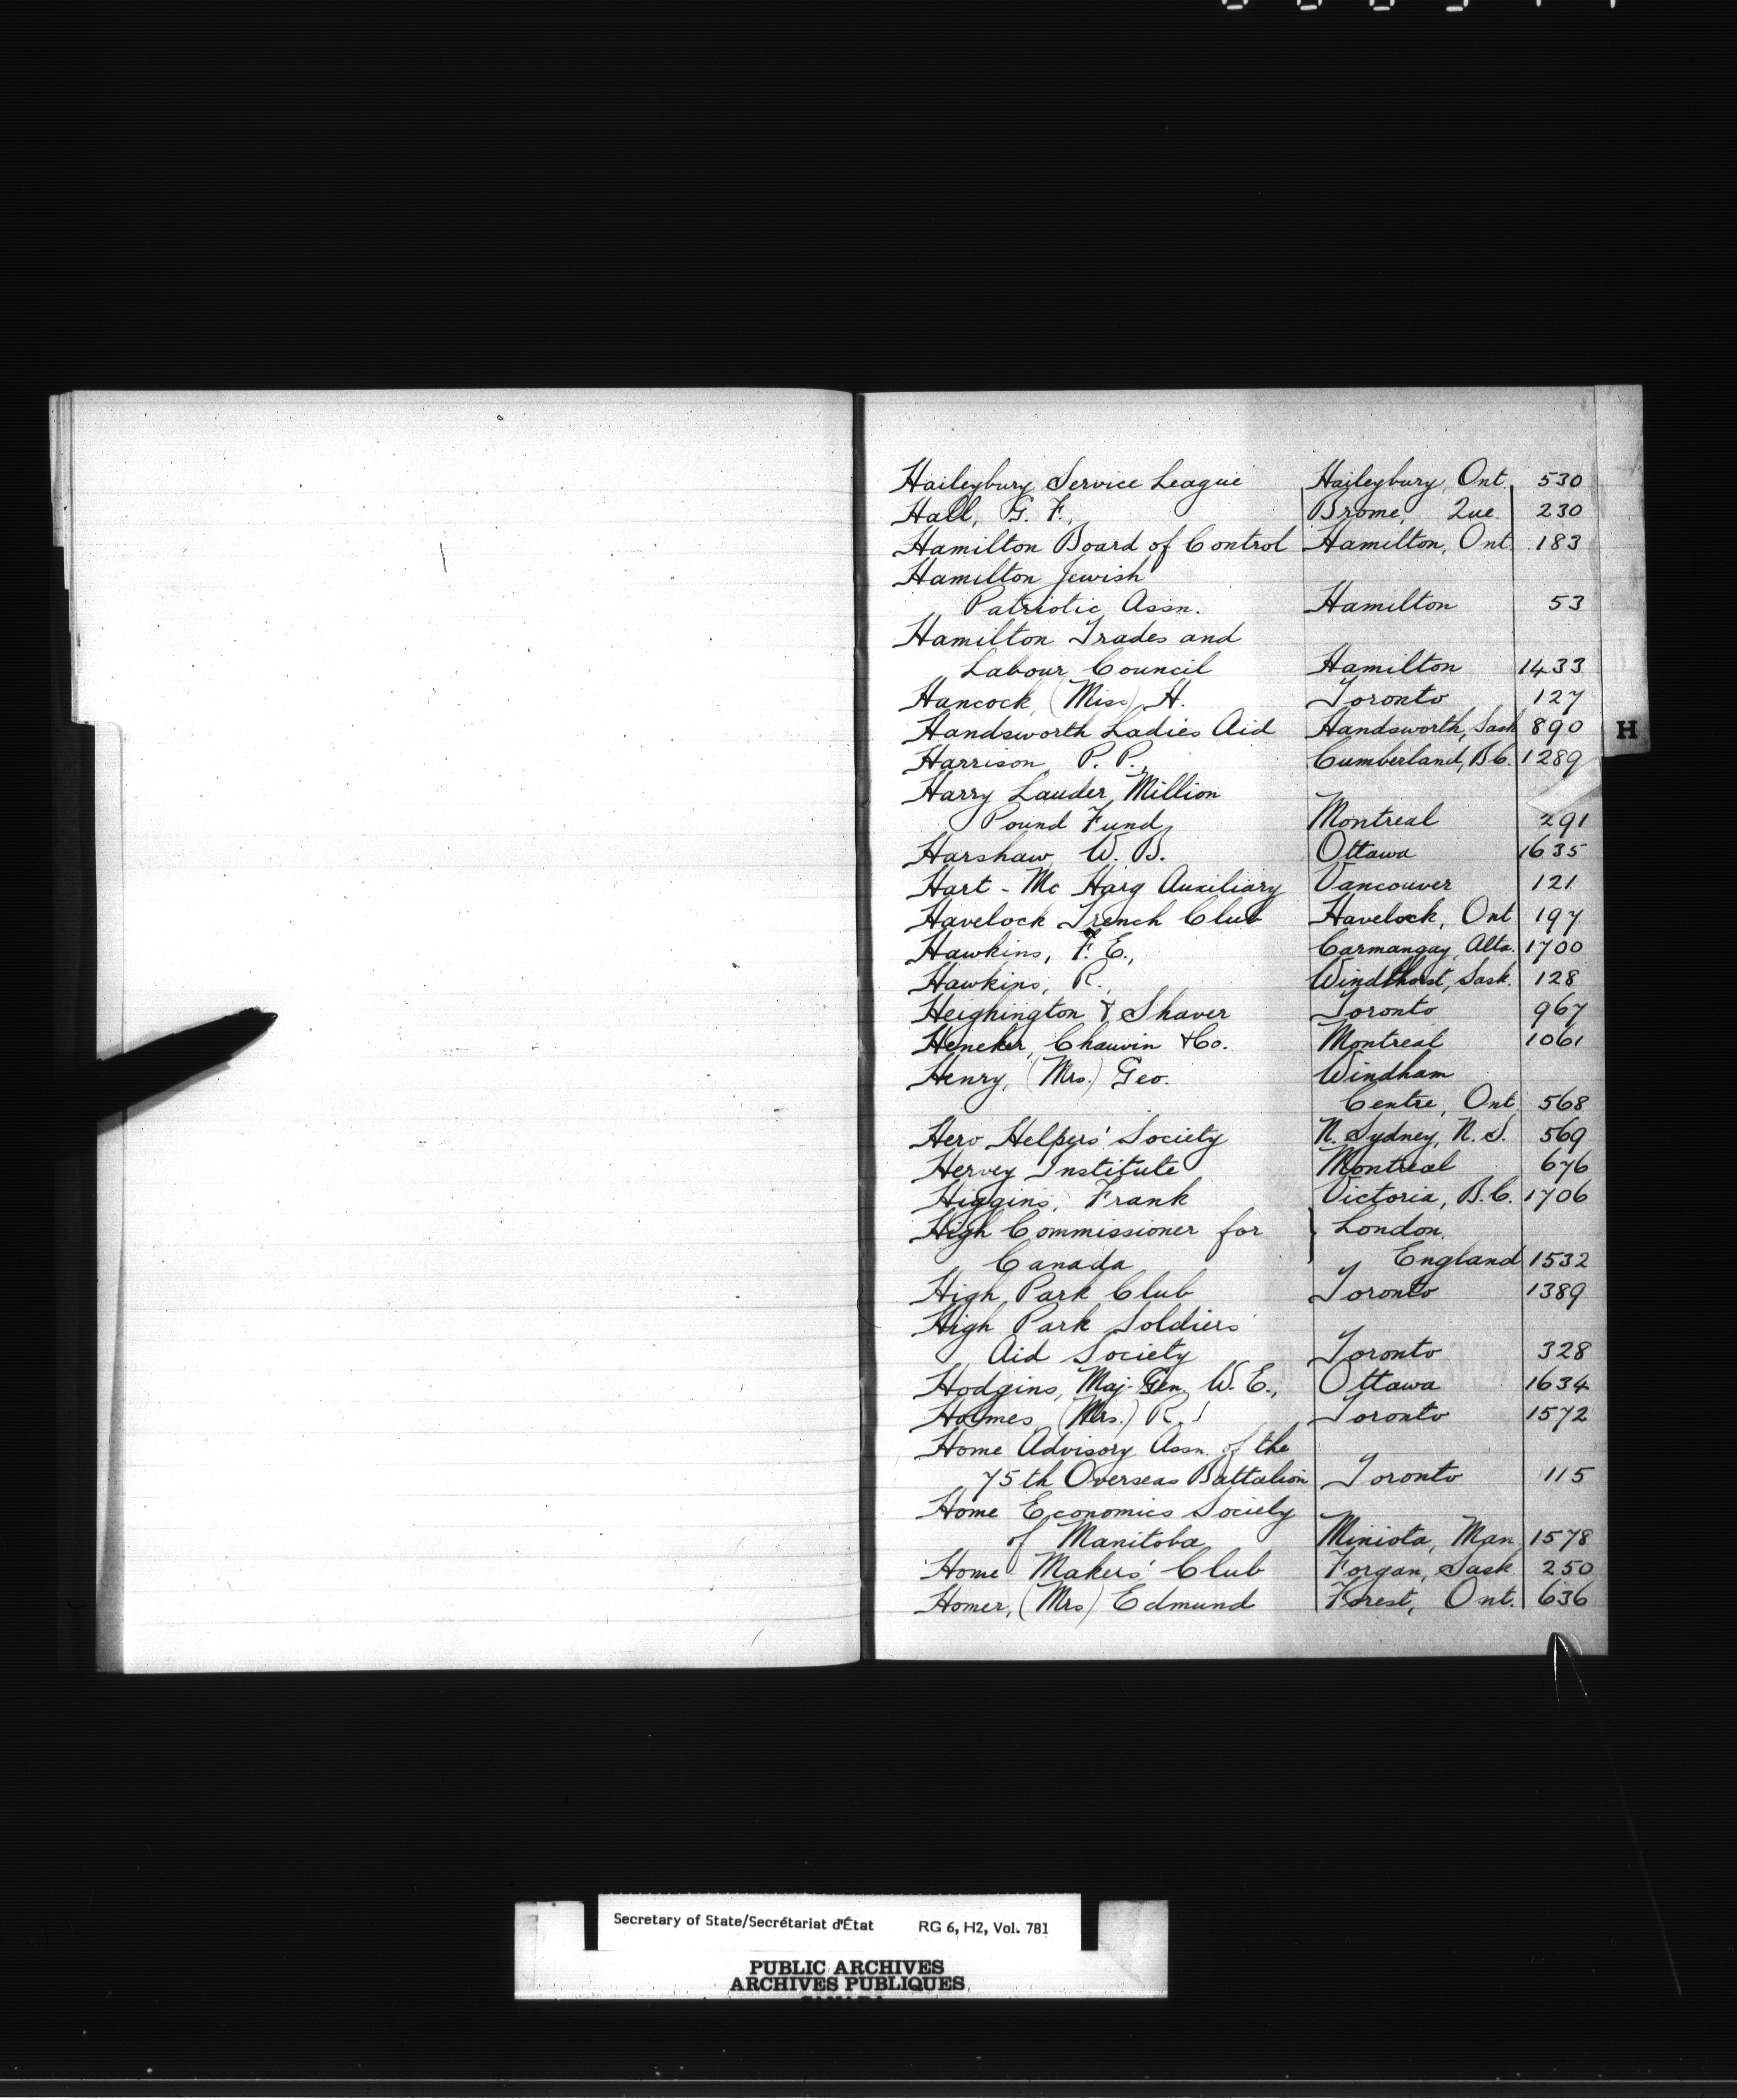 Haileybury Service League Haileybury, Ont. 530
Hall, G. F., Brome, Que. 230
Hamilton Board of Control Hamilton, Ont. 183
Hamilton Jewish
Patriotic Assn. Hamilton 53
Hamilton Trades and
Labour Council Hamilton 1433
Hancock, (Miss) H. Toronto 127
Handsworth Ladies Aid Handsworth, Sask 890
H
Harrison, P. P., Cumberland, B.C. 1289
Harry Lauder Million
Pound Fund Montreal 291
Harshaw, W. B. Ottawa 1635
Hart-McHarg Auxiliary Vancouver 121
Havelock Trench Club Havelock, Ont 197
Hawkins, F. E., Carmangay, Alta. 1700
Hawkins, R., Windthorst, Sask. 128
Heighington & Shaver Toronto 967
Heneker, Chauvin & Co. Montreal 1061
Henry, (Mrs.) Geo. Windham
Centre, Ont. 568
Hero Helpers' Society N. Sydney, N. S. 569
Hervey Institute Montreal 676
Higgins, Frank Victoria, B.C. 1706
High Commissioner for London,
Canada England 1532
High Park Club Toronto 1389
High Park Soldiers'
Aid Society Toronto 328
Hodgins, Maj-Gen. W. E., Ottawa 1634
Holmes, (Mrs.) R. J Toronto 1572
Home Advisory Assn. of the
75th Overseas Battalion Toronto 115
Home Economics Society
of Manitoba Miniota, Man. 1578
Home Makers' Club Forgan, Sask. 250
Homer, (Mrs) Edmund Forest, Ont. 636
Secretary of State/Secrétariat d'État RG 6, H2, Vol. 781
PUBLIC ARCHIVES
ARCHIVES PUBLIQUES